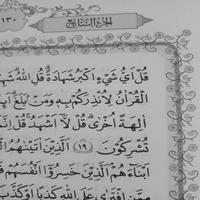 ١٣٠ الجزء السابع
قُلْ أَىُّ شَىْءٍ أَكْبَرُ شَهَادَةً قُلِ اللَّهُ
الْقُرْآنُ لِأُنْذِرَكُمْ بِهِ وَمَنْ بَلَغَ
آلِهَةً أُخْرَى قُلْ لَا أَشْهَدُ قُلْ
تُشْرِكُونَ ﴿١٩﴾ الَّذِينَ آتَيْنَاهُمُ
أَبْنَاءَهُمُ الَّذِينَ خَسِرُوا أَنْفُسَهُمْ
مِمَّنِ افْتَرَى عَلَى اللَّهِ كَذِبًا أَوْ كَذَّبَ